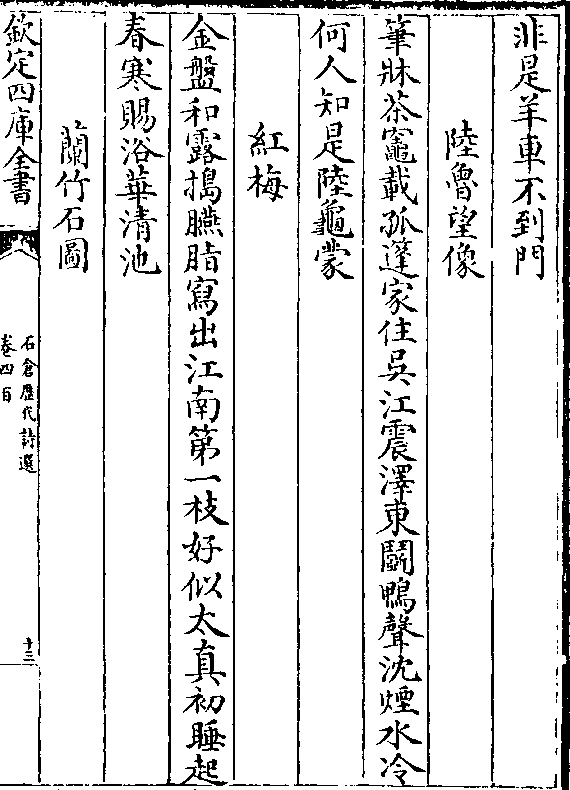 非是羊車不到門
陸魯望像
筆牀茶竈載孤篷家住吳江震澤東鬭鴨聲沈煙水冷
何人知是陸龜蒙
紅梅
金盤和露搗臙脂寫出江南第一枝好似太真初睡起
春寒賜浴華清池
蘭竹石圖
欽定四庫全書
石倉歷代詩選
卷四百
十三